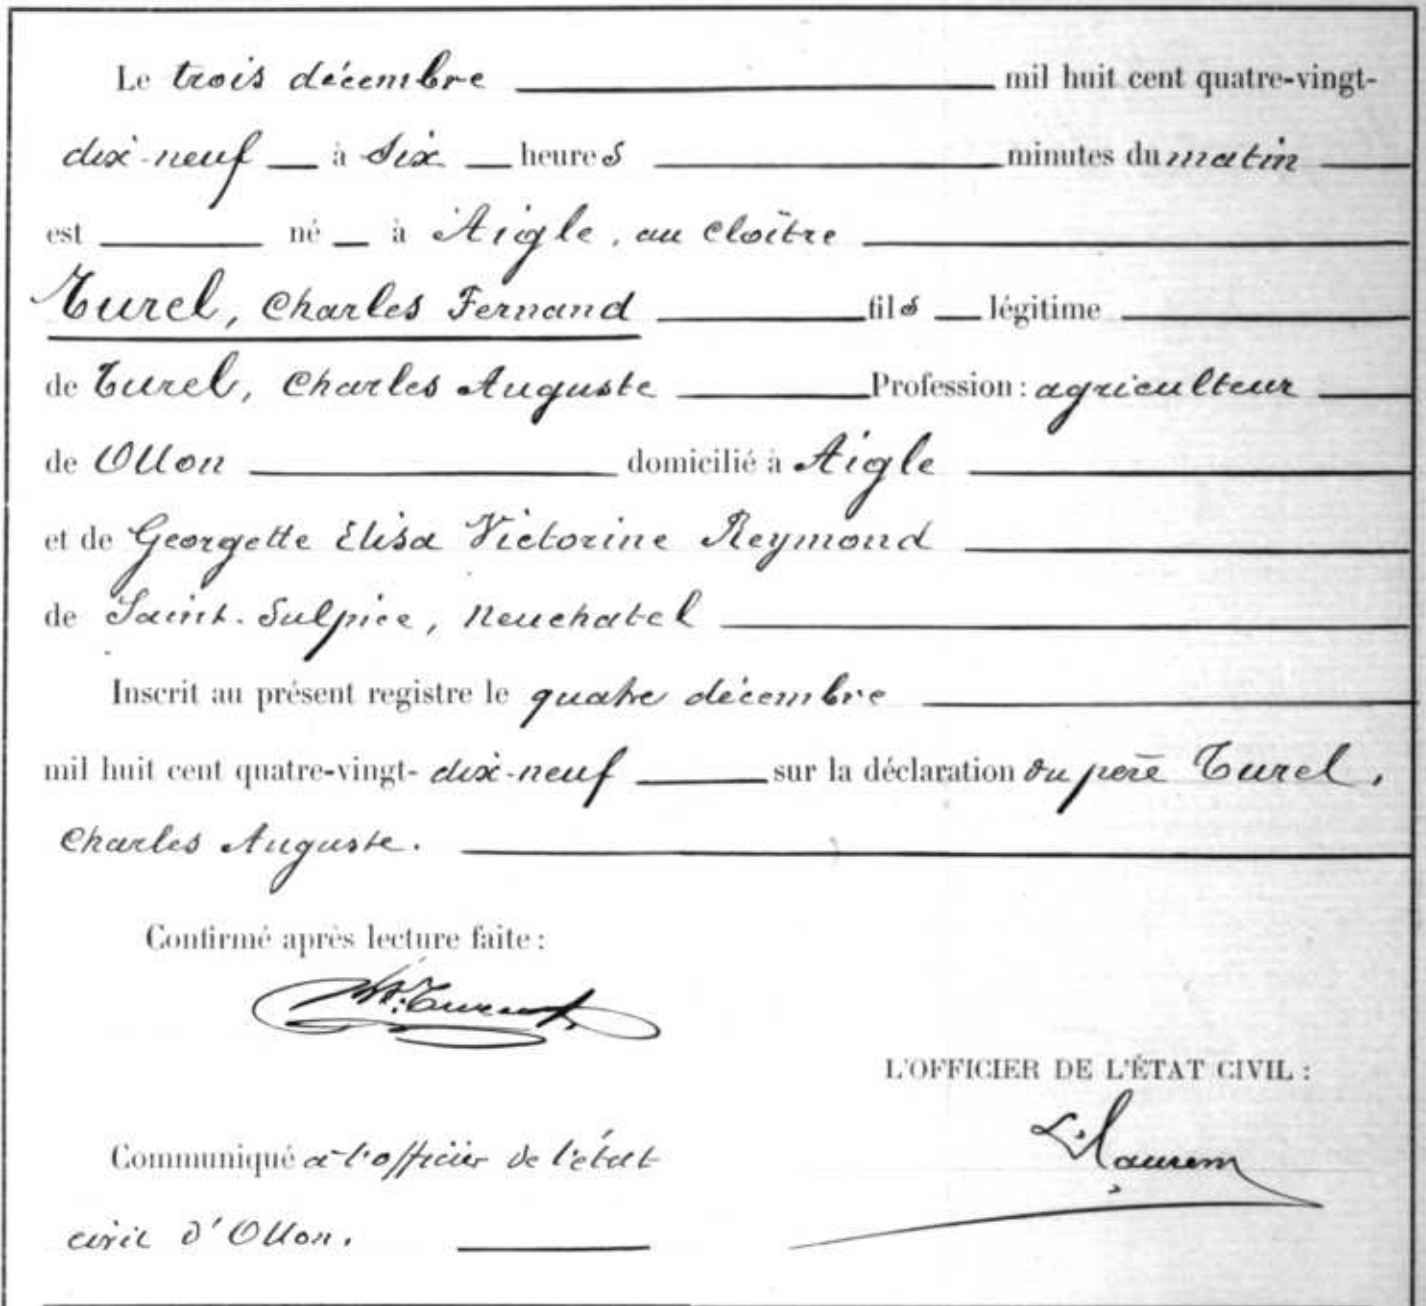 Le trois décembre mil huit cent quatre-vingt-
dix-neuf à six heures minutes du matin
est né à Aigle, au Cloître
Turel, Charles Fernand fils légitime
de Turel, Charles Auguste Profession : agriculteur
de Ollon domicilié à Aigle
et de Georgette Elisa Victorine Reymond
de Saint-Sulpice, Neuchatel
Inscrit au présent registre le quatre décembre
mil huit cent quatre-vingt-dix-neuf sur la déclaration du père Turel,
Charles Auguste.
Confirmé après lecture faite :
L'OFFICIER DE L'ÉTAT CIVIL :
Communiqué à l'officier de l'état
civil d'Ollon.